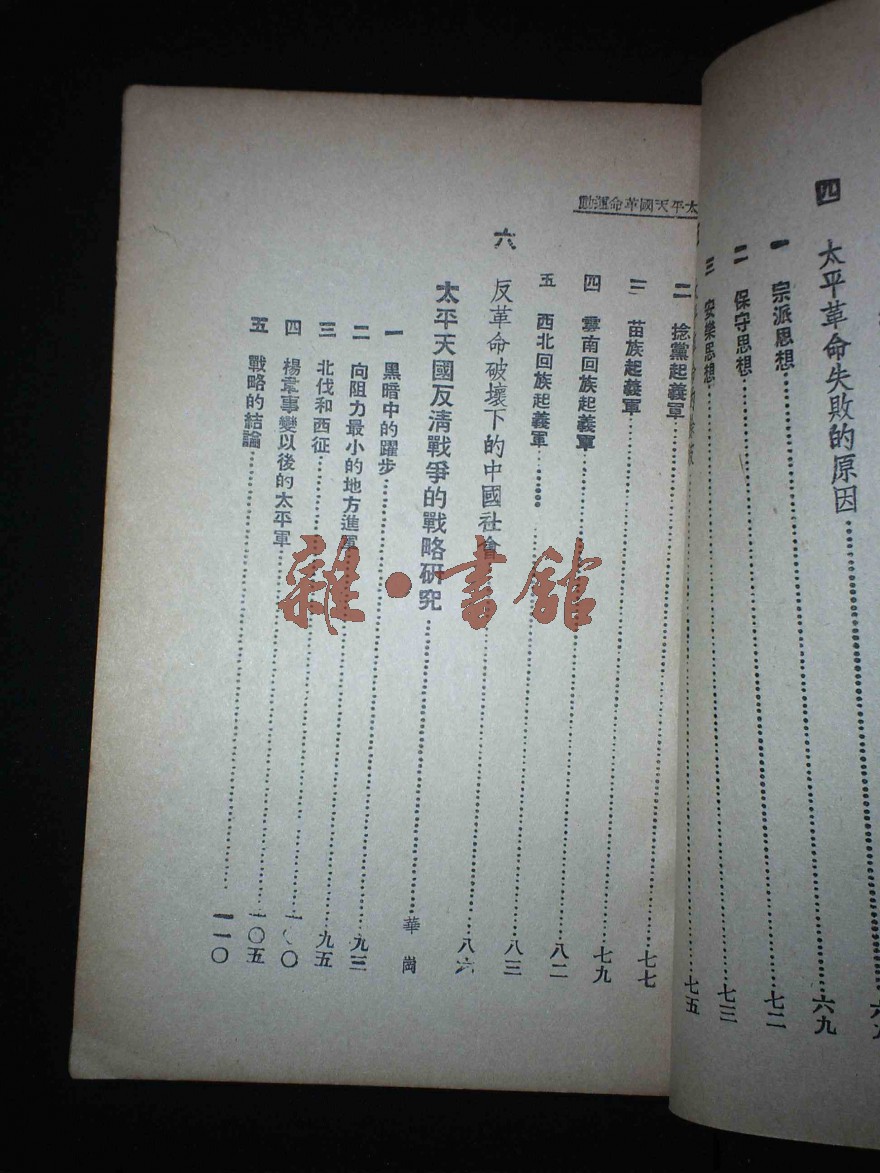 四 太平革命失敗的原因……六九
一 宗派思想……七二
二 保守思想……七三
三 安樂思想……七五
太平天國革命運動
二 捻黨起義軍……七七
三 苗族起義軍……七九
四 雲南回族起義軍……八二
五 西北回族起義軍……八三
六 反革命破壞下的中國社會……八六
太平天國反清戰爭的戰略研究……華崗
一 黑暗中的躍步……九三
二 向阻力最小的地方進軍……九五
三 北伐和西征……一〇〇
四 楊韋事變以後的太平軍……一〇五
五 戰略的結論……一一〇
雜·書館